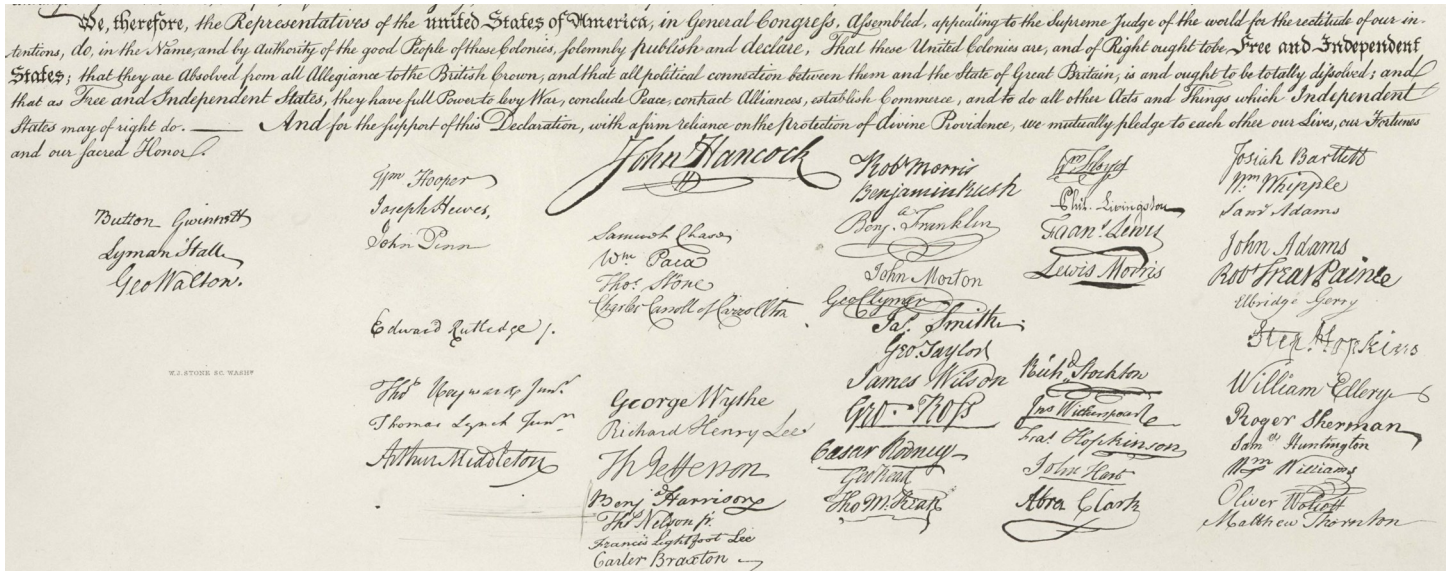 We, therefore, the Representatives of the united States of America, in General Congress, Assembled, appealing to the Supreme Judge of the world for the rectitude of our in-
tentions, do, in the Name, and by Authority of the good People of these Colonies, solemnly publish and declare, That these United Colonies are, and of Right ought to be, Free and Independent
States; that they are Absolved from all Allegiance to the British Crown, and that all political connection between them and the State of Great Britain, is and ought to be totally dissolved; and
that as Free and Independent States, they have full Power to levy War, conclude Peace, contract Alliances, establish Commerce, and to do all other Acts and Things which Independent
States may of right do. — And for the support of this Declaration, with a firm reliance on the protection of divine Providence, we mutually pledge to each other our Lives, our Fortunes
and our sacred Honor.
Button Gwinnett
Lyman Hall
Geo Walton.
W.J. STONE SC. WASHN
Wm Hooper
Joseph Hewes,
John Penn
Edward Rutledge /.
Thos Heyward Junr.
Thomas Lynch Junr.
Arthur Middleton
John Hancock
Samuel Chase
Wm Paca
Thos Stone
Charles Carroll of Carrollton
George Wythe
Richard Henry Lee
Th Jefferson
Benj Harrison
Thos Nelson jr.
Francis Lightfoot Lee
Carter Braxton
Robt Morris
Benjamin Rush
Benja. Franklin
John Morton
Geo Clymer
Jas. Smith
Geo. Taylor
James Wilson
Geo. Ross
Caesar Rodney
Geo Read
Tho M:Kean
Wm Floyd
Phil. Livingston
Frans. Lewis
Lewis Morris
Richd. Stockton
Jno Witherspoon
Fras. Hopkinson
John Hart
Abra Clark
Josiah Bartlett
Wm Whipple
Saml Adams
John Adams
Robt Treat Paine
Elbridge Gerry
Step. Hopkins
William Ellery
Roger Sherman
Samel Huntington
Wm Williams
Oliver Wolcott
Matthew Thornton